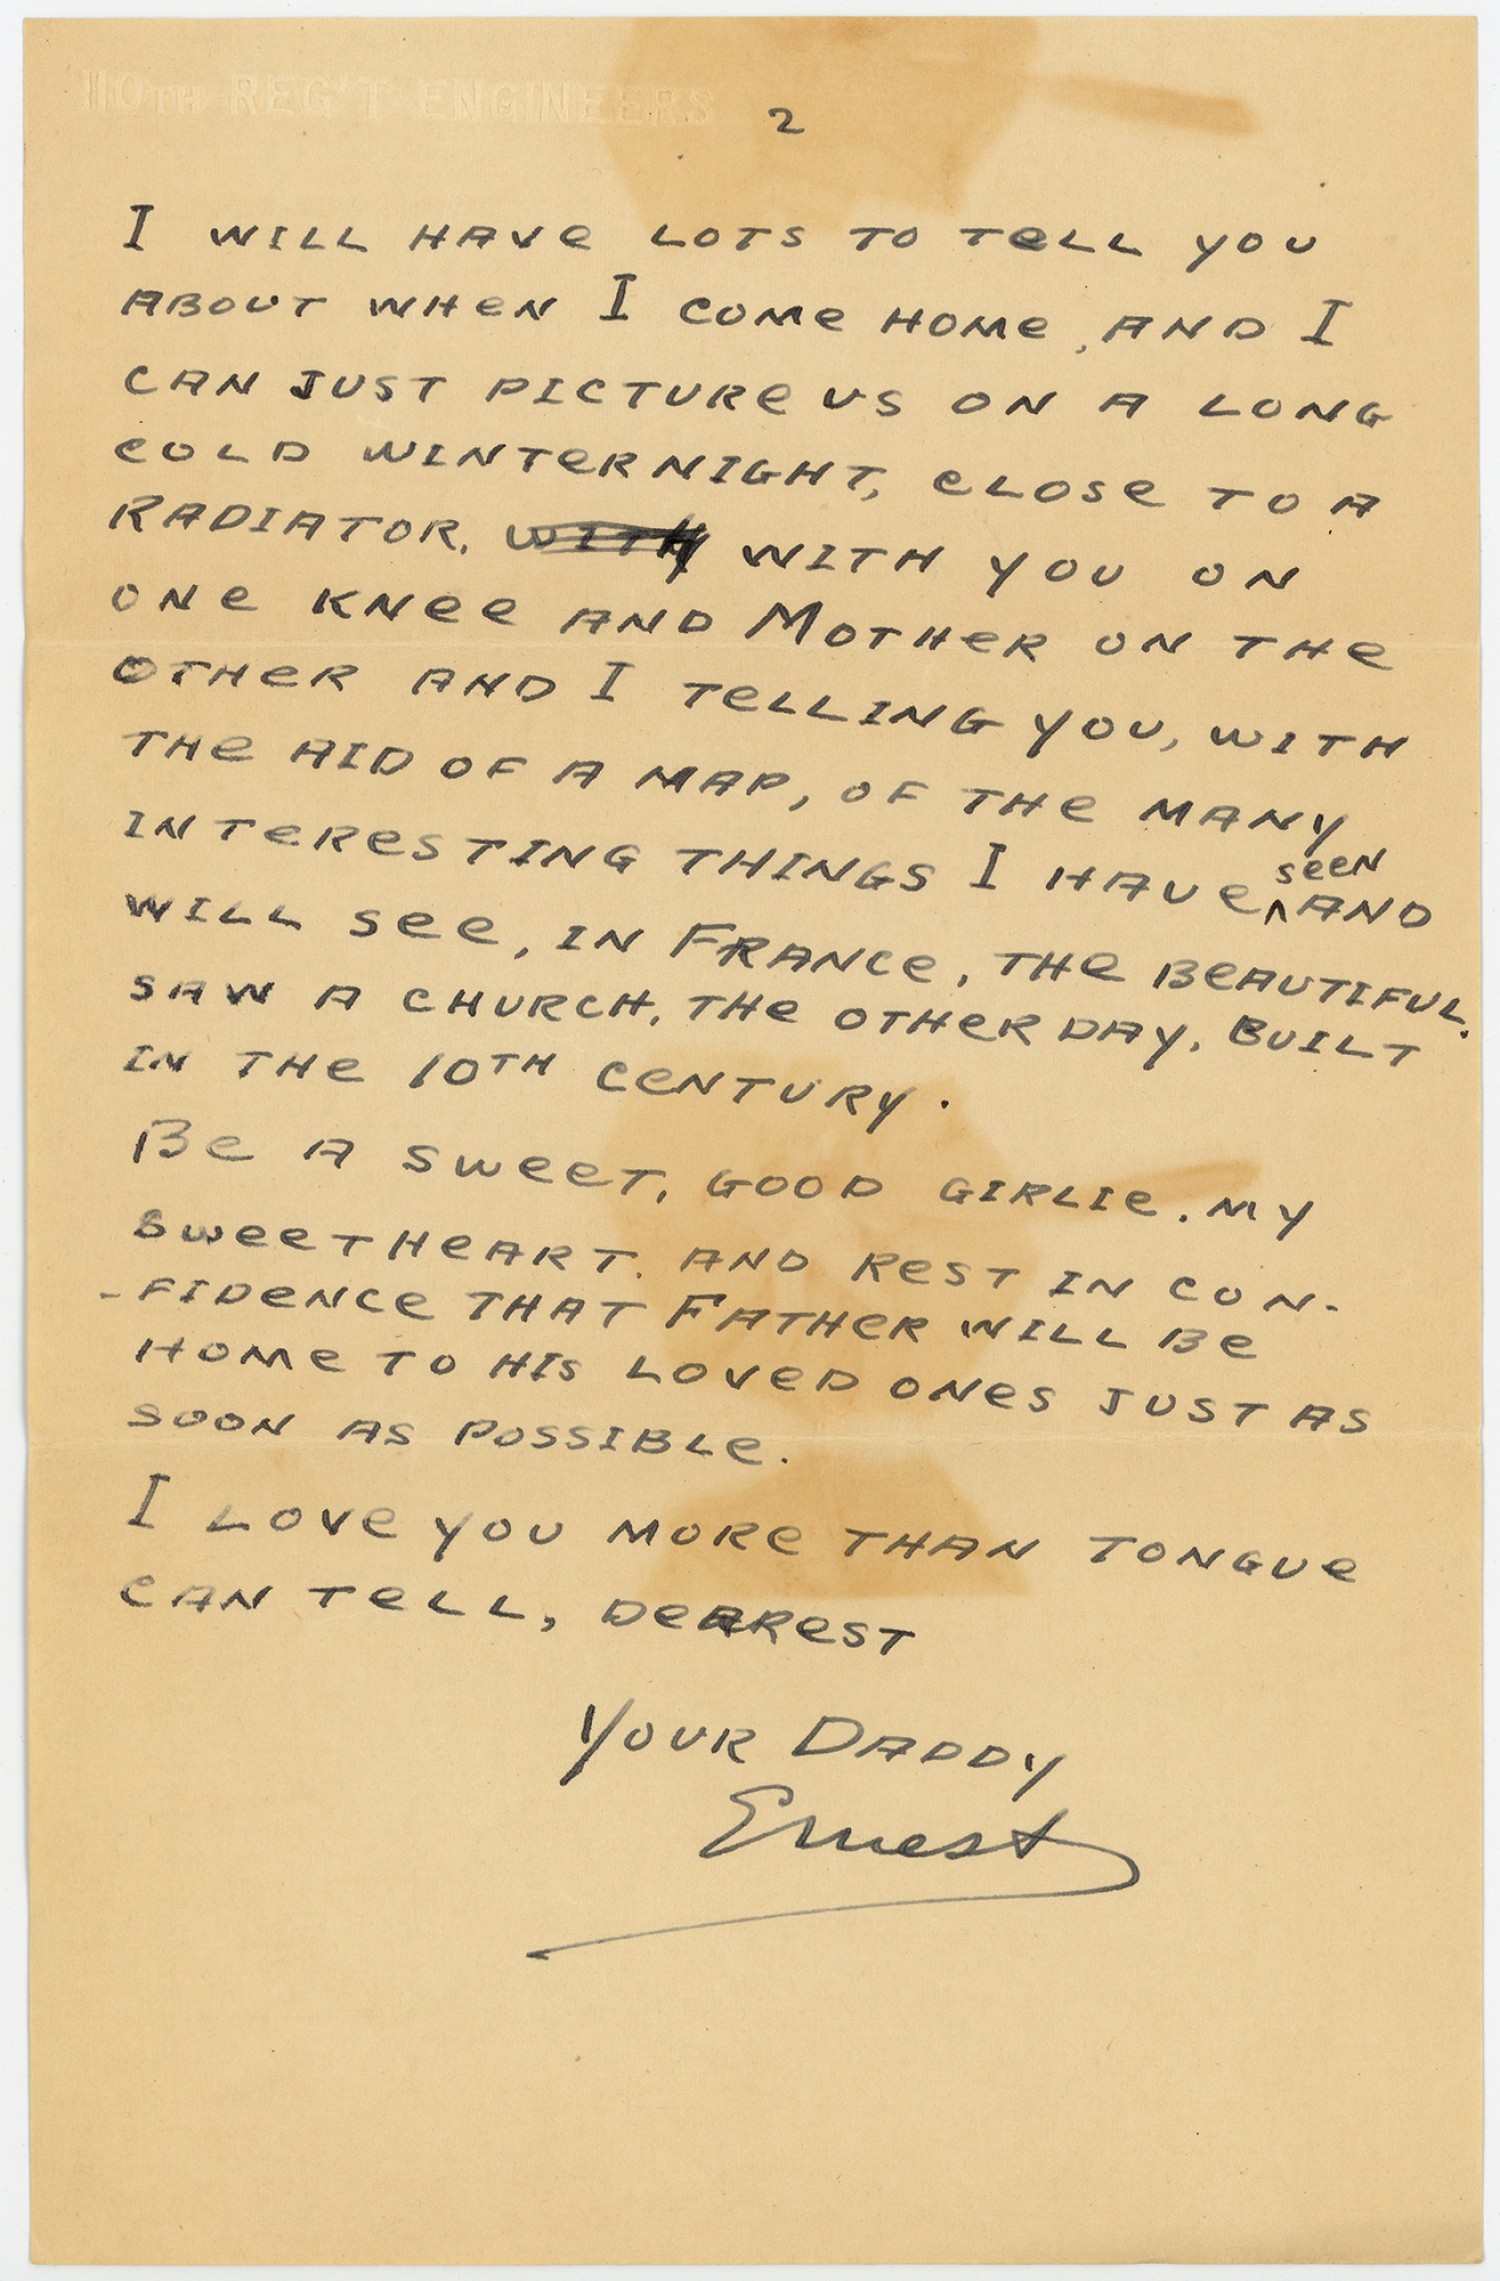 110TH REG'T ENGINEERS
2
I WILL HAVE LOTS TO TELL YOU
ABOUT WHEN I COME HOME, AND I
CAN JUST PICTURE US ON A LONG
COLD WINTER NIGHT, CLOSE TO A
RADIATOR, WITH WITH YOU ON
ONE KNEE AND MOTHER ON THE
OTHER AND I TELLING YOU, WITH
THE AID OF A MAP, OF THE MANY
INTERESTING THINGS I HAVE ^seen AND
WILL SEE, IN FRANCE, THE BEAUTIFUL.
SAW A CHURCH, THE OTHER DAY, BUILT
IN THE 10TH CENTURY.
BE A SWEET, GOOD GIRLIE. MY
SWEETHEART. AND REST IN CON-
-FIDENCE THAT FATHER WILL BE
HOME TO HIS LOVED ONES JUST AS
SOON AS POSSIBLE.
I LOVE YOU MORE THAN TONGUE
CAN TELL, DEAREST
YOUR DADDY
Ernest